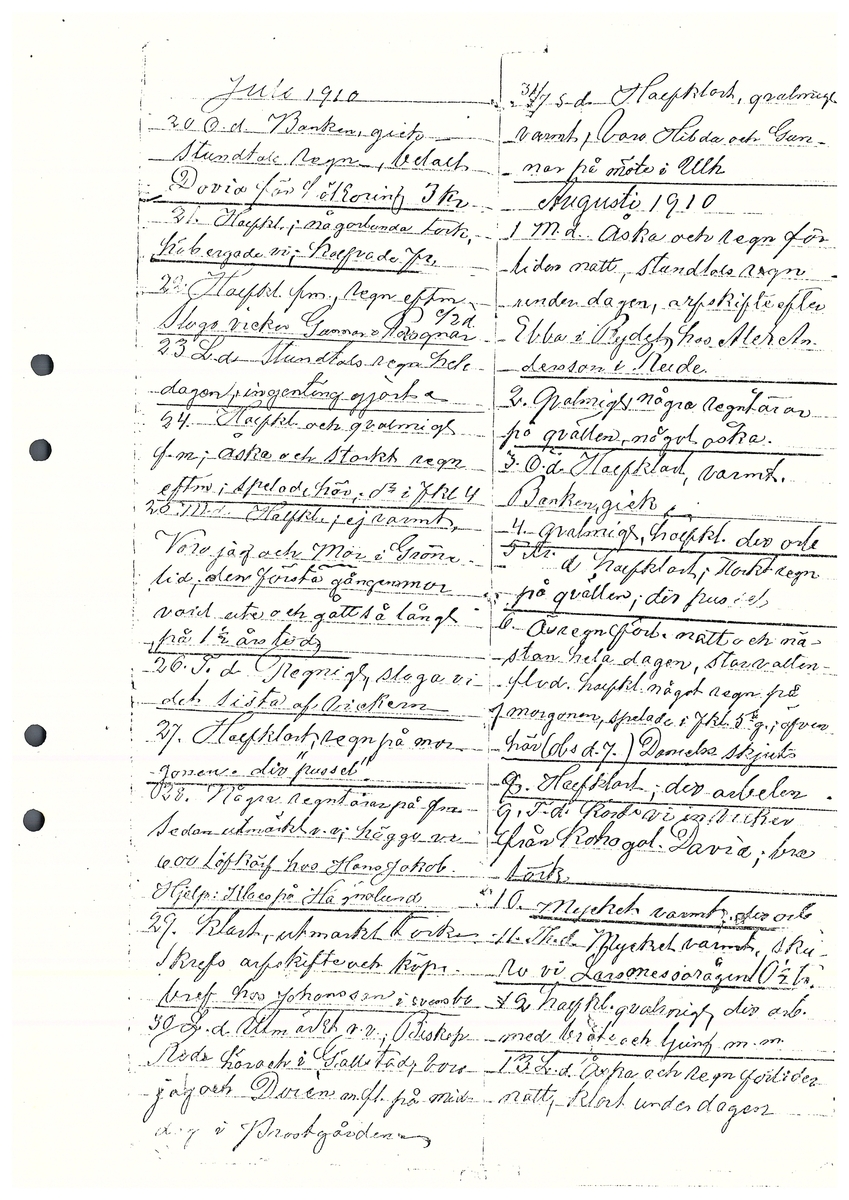 Juli 1910
20 O.d. Banken, gick
stundtals regn, betalt
David för 3 kr
21. Halfkl.; någorlunda tork,
höbergade vi;
22. Halfkl fm., regn eftm
Slogo vicker Gunnar o Ragnar
23 L.d. Stundtals regn hela
dagen, ingenting gjorts
24. Halfkl och qvalmigt
f.m; åska och starkt regn
eftm; spelade här,
25. M.d. Halfkl.; ej varmt,
Voro jag och Mor i Gröne-
lid, den första gången mor
varit ute och gått så långt
på 1½ års tid
26. T. d Regnigt, sloga vi
det sista af vickern
27. Halfklart, regn på mor-
gonen. div "pussel".
28. Några regntårar på fm
sedan utmärkt v.v; höggo vi
600 löfkärf hos Hans Jakob.
Hjelp: Klas på Hagnelund
29. Klart, utmärkt tork
Skrefs arfskifte och köpe-
bref hos Johansson i
30 L.d Utmärkt v.v, Biskop
Rode hörach i Gällstad, voro
jag och m.fl. på mid-
dag i Prostgården
31/7 S.d. Halfklart, qvalmigt
varmt, Voro Hilda och Gun-
nar på möte i Ulh
Augusti 1910
1 M.d. Åska och regn för-
liden natt, stundtals regn
under dagen, arfskifte efter
Ebba i Rydet, hos Alex An-
dersson i Rude.
2. Qvalmigt, några regntårar
på qvällen, något åska.
3. O.d. Halfklart, varmt.
Banken, gick
4. qvalmigt, halfkl. div arb
5 Fr.
d halfklart; starkt regn
på qvällen; div pussel,
6. Ösregn förl. natt och nä-
stan hela dagen, stor vatten-
flod. halfkl. något regn på
7 morgonen, spelade i Jkl 5 g.; äfven
här (obs d. 7.) Daniels skjuts
8. Halfklart; div arbeten
9. T.d. Körde vi in vicker
från David; bra
tork.
10. Mycket varmt; div arb
11. Th.d. Mycket varmt, sku-
ro vi Larsmessorågen
12 halfkl. qvalmigt, div arb.
med bråte och ljung m.m.
13 L.d. Åska och regn förliden
natt, klart under dagen